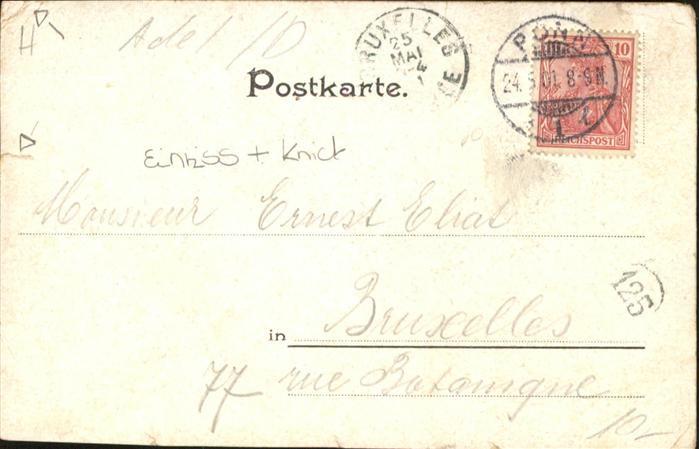 H
Adel /D
BRUXELLES
25
MAI
BONN
24.5.01.8-9N.
1 t
10
REICHSPOST
Postkarte.
Einriss + Knick
Monsieur Ernest Eliat
125
in Bruxelles
77 rue Botanique
10-